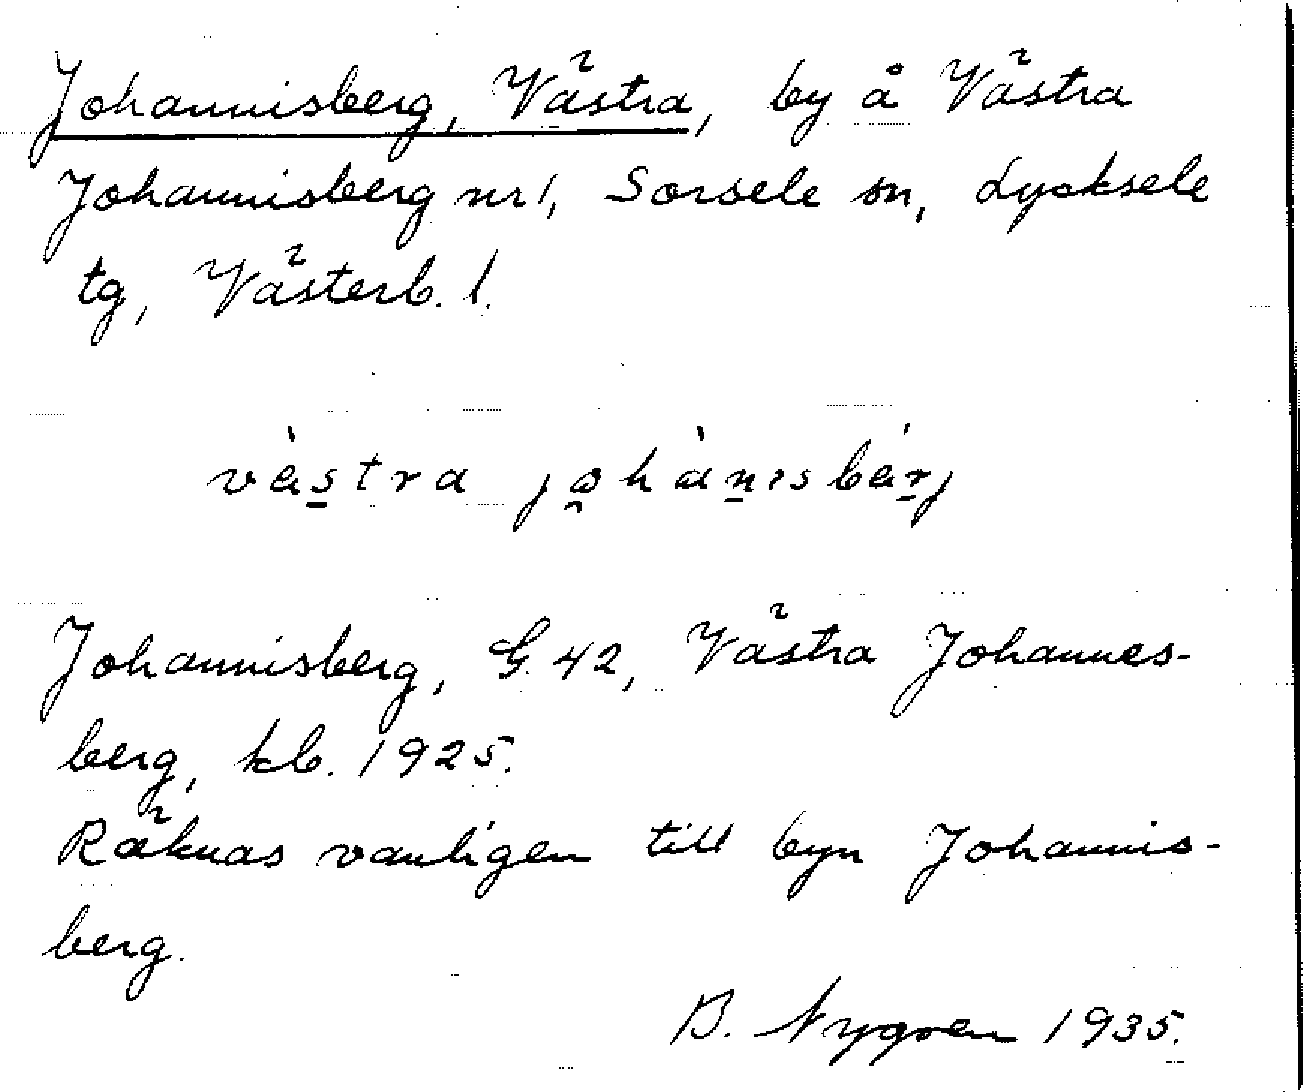 Johannisberg, Västra, by å Västra
Johannisberg nr 1, Sorsele sn, Lycksele
tg, Västerb. l.
västra johànisbärj
Johannisberg, G. 42, Västra Johannes-
berg, kb. 1925.
Räknas vanligen till byn Johannis-
berg.
B. Nygren 1935.